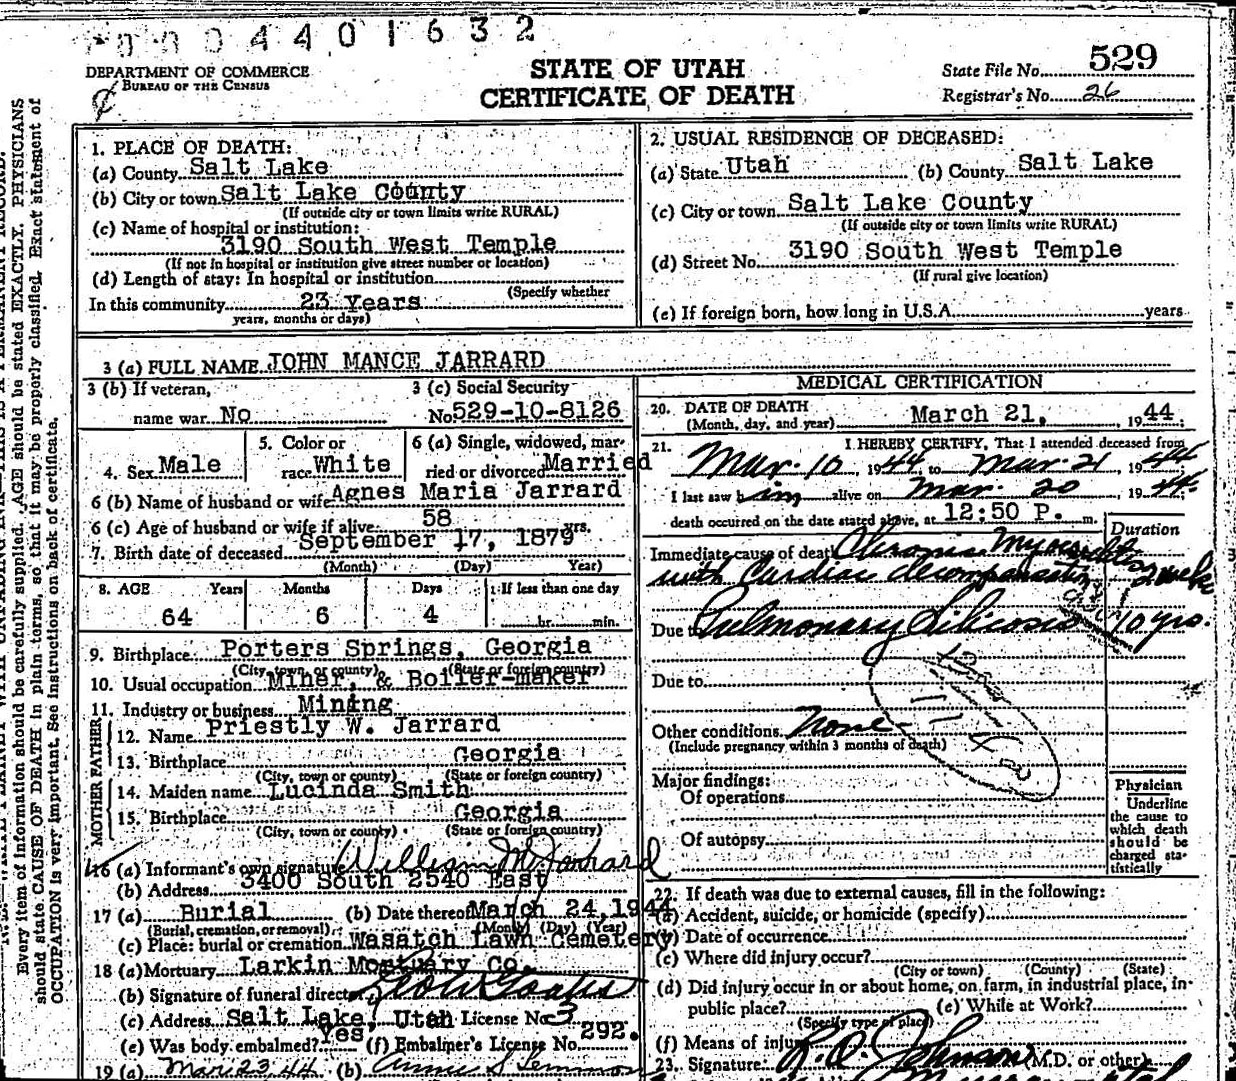 0004401632
DEPARTMENT OF COMMERCE
BUREAU OF THE CENSUS
STATE OF UTAH
CERTIFICATE OF DEATH
State File No. 529
Registrar's No. 26
1. PLACE OF DEATH:
(a) County Salt Lake
(b) City or town Salt Lake County
(If outside city or town limits write RURAL)
(c) Name of hospital or institution:
3190 South West Temple
(If not in hospital or institution give street number or location)
(d) Length of stay: In hospital or institution
(Specify whether
In this community 23 Years
years, months or days)
2. USUAL RESIDENCE OF DECEASED:
(a) State Utah (b) County Salt Lake
(c) City or town Salt Lake County
(If outside city or town limits write RURAL)
(d) Street No. 3190 South West Temple
(If rural give location)
(e) If foreign born, how long in U.S.A. years
3 (a) FULL NAME JOHN MANCE JARRARD
3 (b) If veteran,
name war No
3 (c) Social Security
No. 529-10-8126
4. Sex Male
5. Color or
race White
6 (a) Single, widowed, mar-
ried or divorced Married
6 (b) Name of husband or wife Agnes Maria Jarrard
6 (c) Age of husband or wife if alive 58 yrs.
7. Birth date of deceased September 17, 1879
(Month) (Day) Year)
8. AGE Years Months Days If less than one day
64 6 4 hr. min.
9. Birthplace Porters Springs, Georgia
(City, town, or county) (State or foreign country)
10. Usual occupation Miner, & Boiler-maker
11. Industry or business Mining
FATHER
12. Name Priestly W. Jarrard
13. Birthplace Georgia
(City, town or county) (State or foreign country)
MOTHER
14. Maiden name Lucinda Smith
15. Birthplace Georgia
(City, town or county) (State or foreign country)
16 (a) Informant's own signature William M Jarrard
(b) Address 3400 South 2540 East
17 (a) Burial (b) Date thereof March 24, 1944
(Burial, cremation, or removal) (Month) (Day) (Year)
(c) Place: burial or cremation Wasatch Lawn Cemetery
18 (a) Mortuary Larkin Mortuary Co.
(b) Signature of funeral director
(c) Address Salt Lake, Utah License No. 3
(e) Was body embalmed? Yes (f) Embalmer's License No. 292.
19 (a) Mar. 23 44 (b)
MEDICAL CERTIFICATION
20. DATE OF DEATH
(Month, day, and year) March 21, 1944
21. I HEREBY CERTIFY, That I attended deceased from
Mar. 10, 1944 to Mar. 21 1944
I last saw him alive on Mar. 20 1944
death occurred on the date stated above, at 12:50 P. m.
Duration
Immediate cause of death Chronic Myocarditis 2 weeks
with Cardiac decompensation
Due to Pulmonary Silicosis 10 yrs.
Due to
Other conditions none
(Include pregnancy within 3 months of death)
Major findings:
Of operations
Of autopsy
Physician
Underline
the cause to
which death
should be
charged sta-
tistically
22. If death was due to external causes, fill in the following:
(a) Accident, suicide, or homicide (specify)
(b) Date of occurrence
(c) Where did injury occur?
(City or town) (County) (State)
(d) Did injury occur in or about home, on farm, in industrial place, in-
public place? (e) While at Work?
(Specify type of place)
(f) Means of injury
23. Signature: R. O. Johnson (M.D. or other)
Every item of information should be carefully supplied. AGE should be stated EXACTLY. PHYSICIANS
should state CAUSE OF DEATH in plain terms, so that it may be properly classified. Exact statement of
OCCUPATION is very important. See instructions on back of certificate.